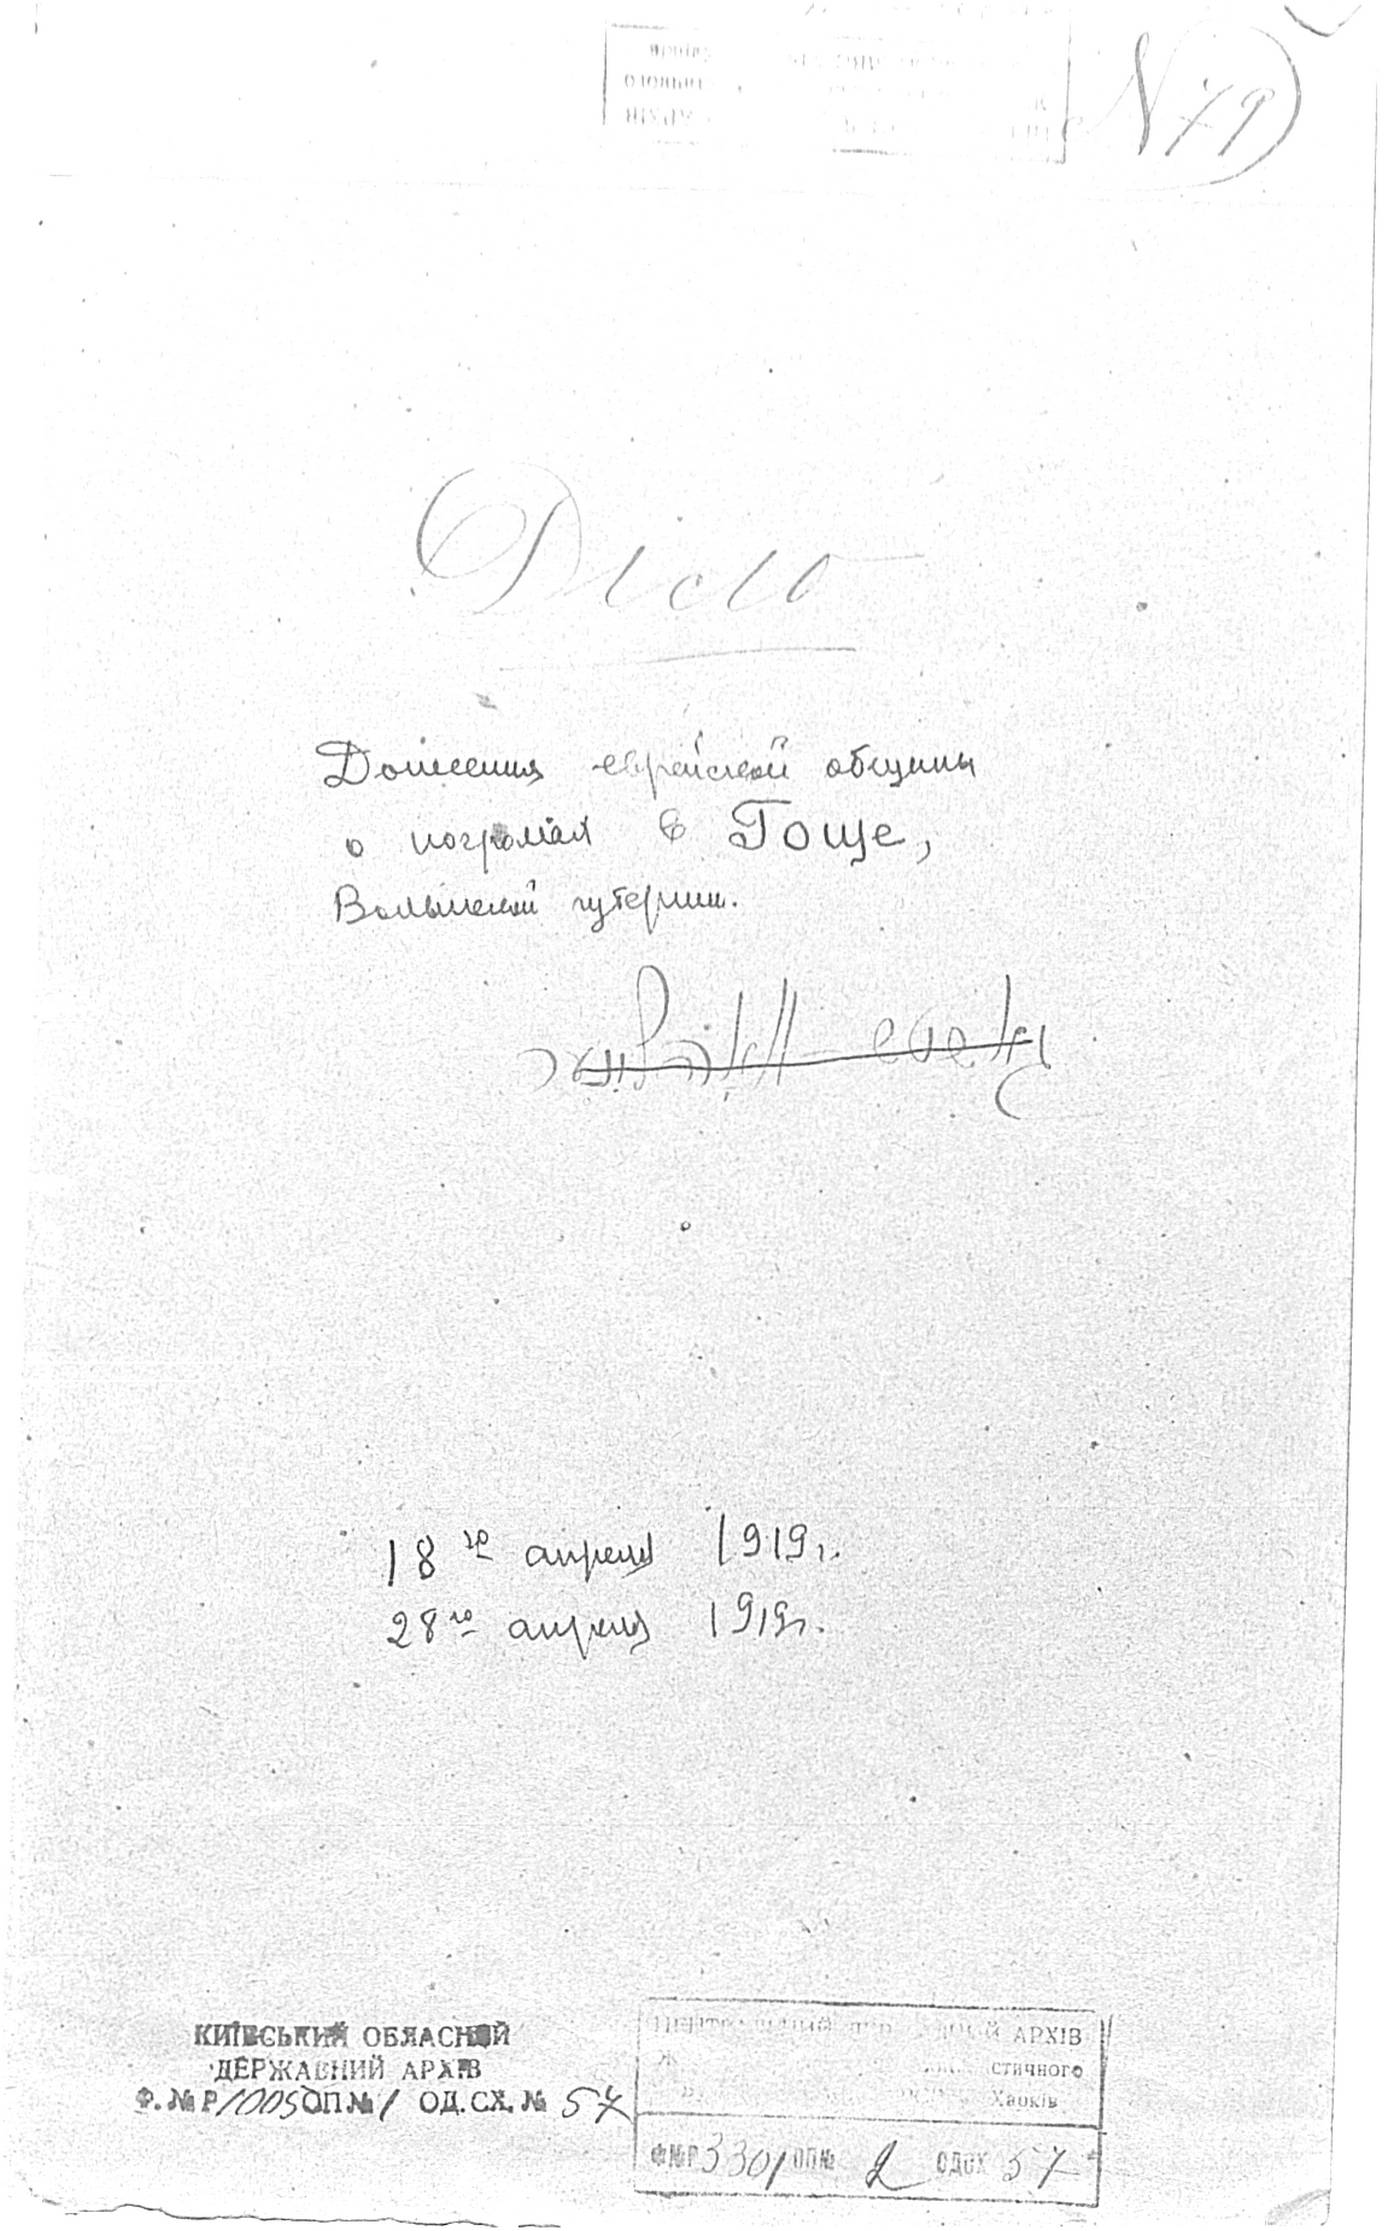 N 79
Дело
Донесения еврейской общины
о погромах в Гоще,
Волынской губернии.
18го апреля 1919г.
28го апреля 1919г.
КИЇВСЬКИЙ ОБЛАСНОЙ
ДЕРЖАВНИЙ АРХІВ
Ф.№ Р/1005 ОП № 1 ОД.СХ. № 57
АРХІВ
стичного
Харків
Ф№Р 3301 ОП№ 2 ОДСХ 57